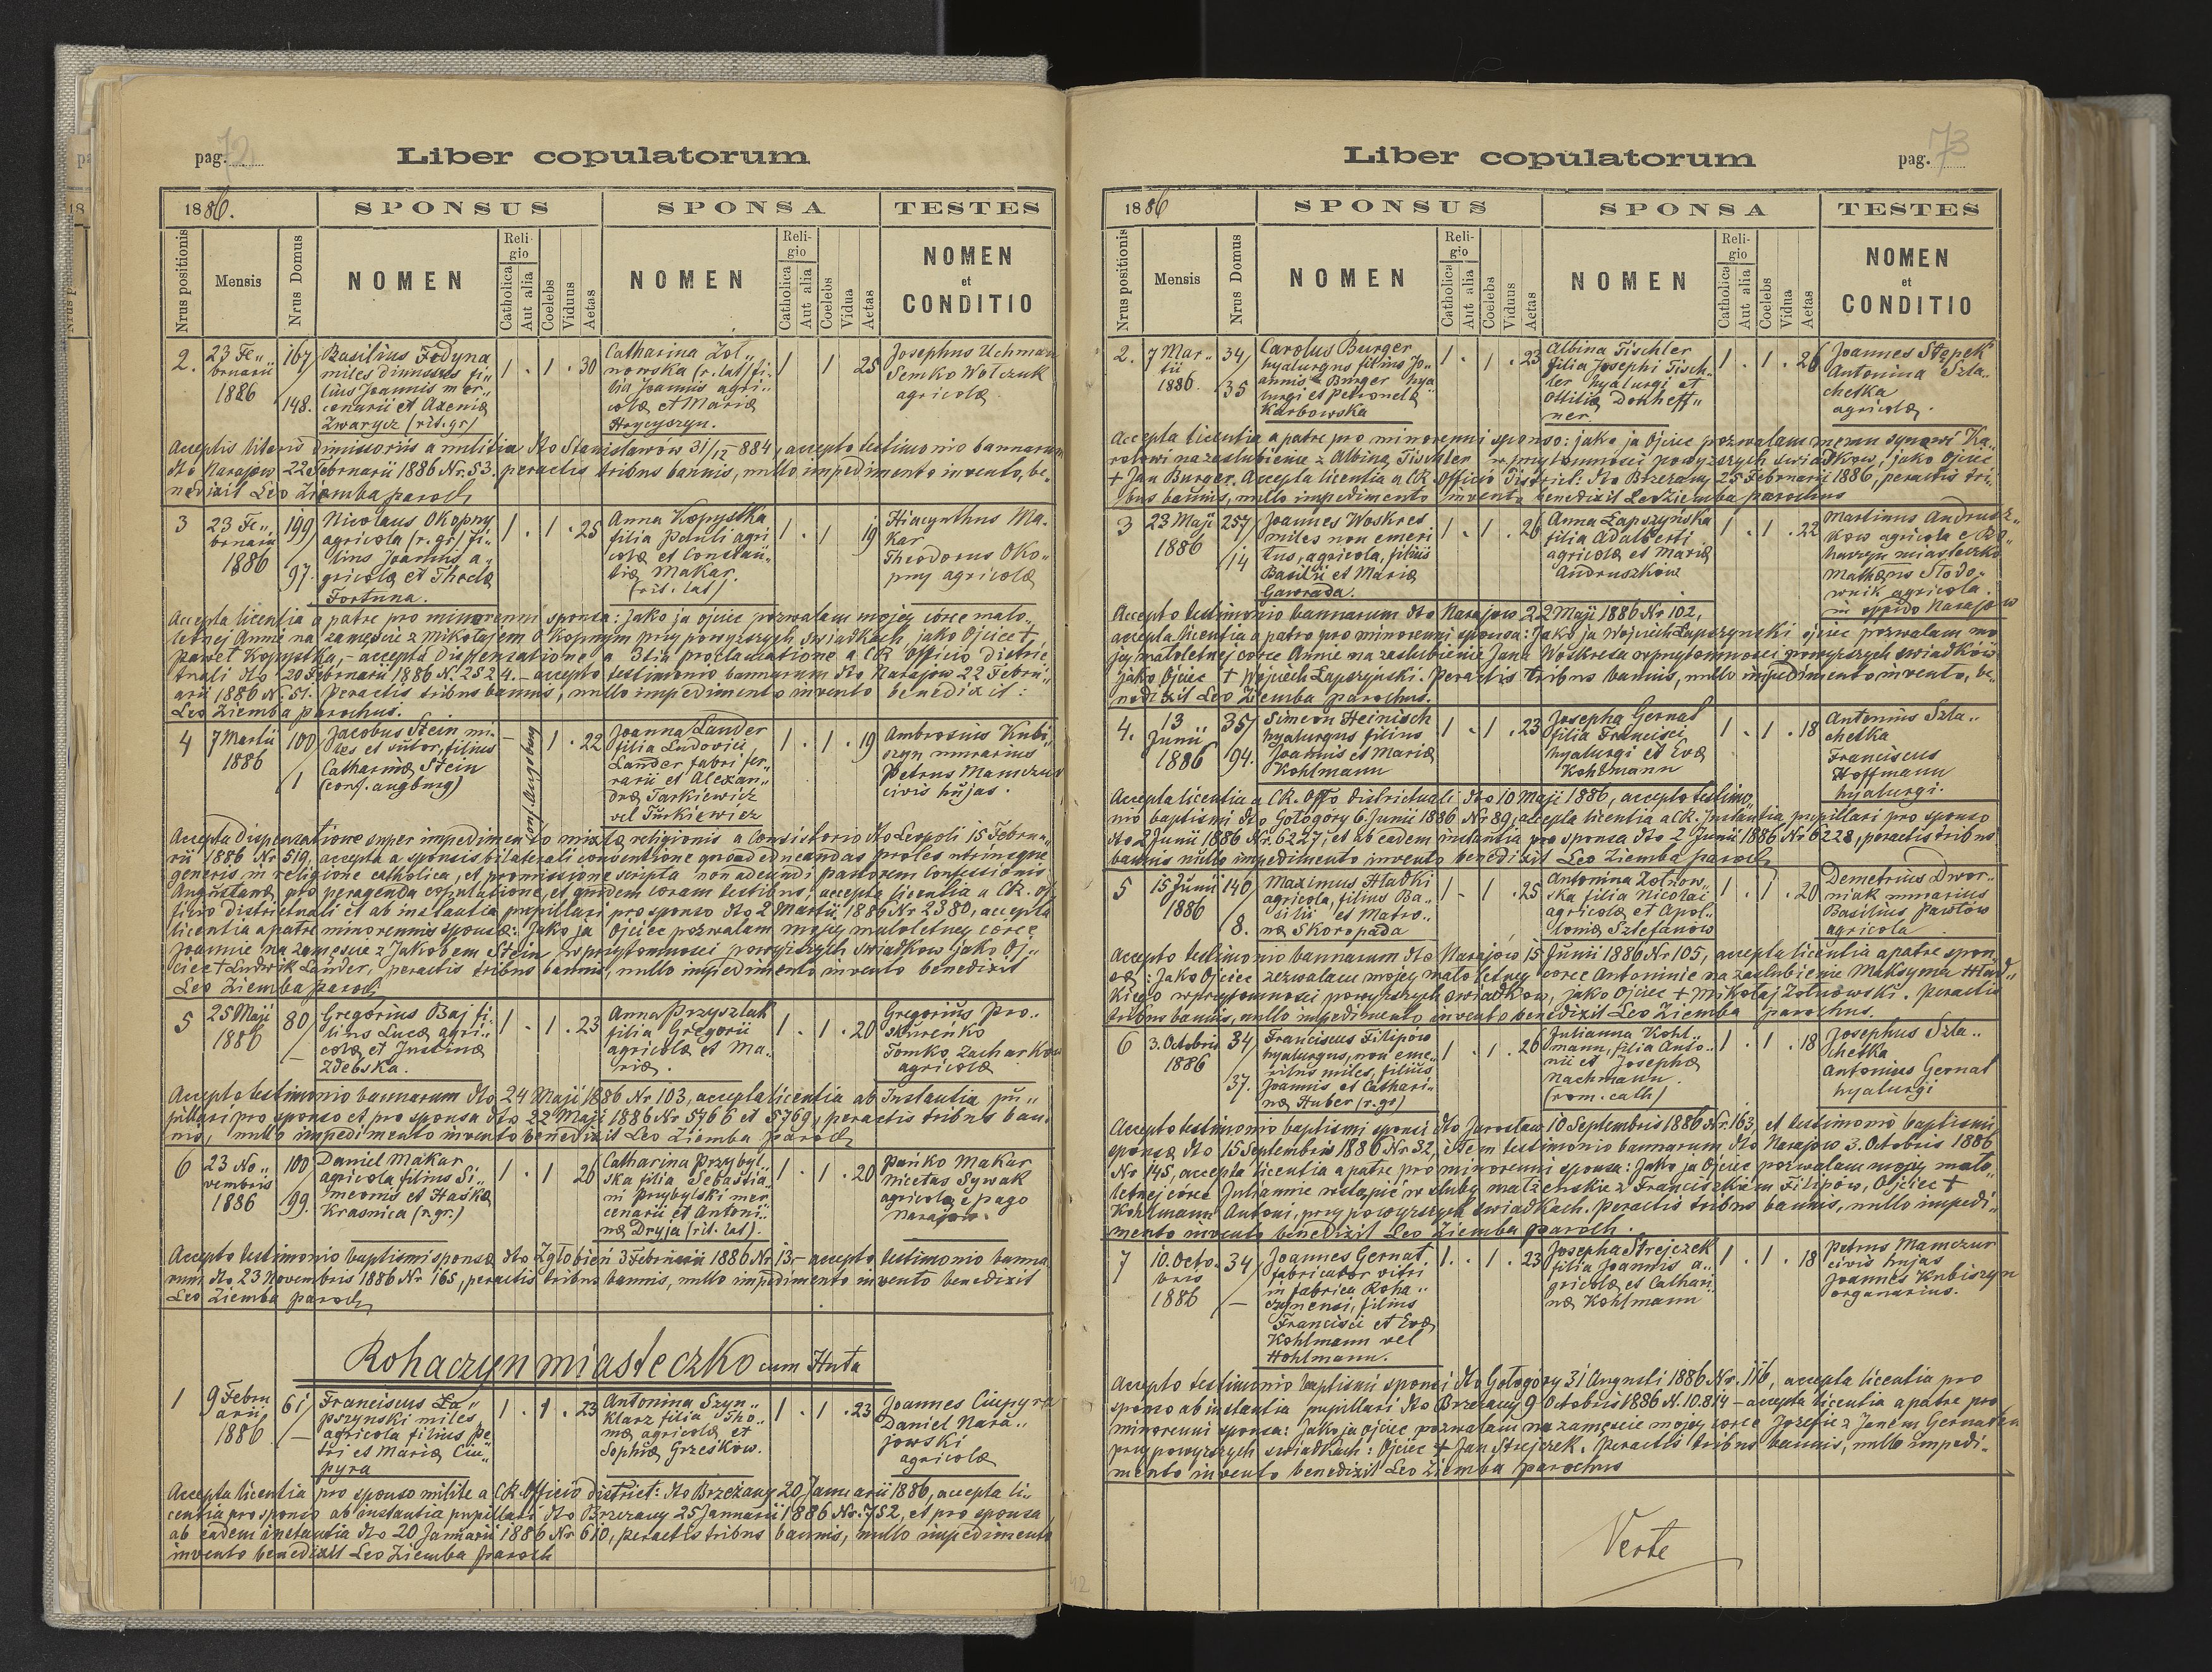 pag. 72
Liber copulatorum
1886.
SPONSUS
SPONSA
TESTES
Nrus positionis
Mensis
Nrus Domus
NOMEN
Religio
Catholica
Aut alia
Coelebs
Viduus
Aetas
NOMEN
Religio
Catholica
Aut alia
Coelebs
Vidua
Aetas
NOMEN
et
CONDITIO
2. 23 Fe„
bruarii
1886
167/
148.
Basilius Fedyna
miles dimissus fi„
lius Joannis mer„
cenarii et Axeniæ
Zwarycz (rit. gr)
1 . 1 . 30
Catharina Żoł„
nowska (r. lat) fi„
lia Joannis agri„
colæ et Mariæ
Hrycyszyn.
1 1 25
Josephus Uchman
Semko Wolczuk
agricolæ
Acceptis literis dimissoriis a militia dto Stanisławów 31/12 884, accepto testimonio bannarum
dto Narajów 22 Februarii 1886 Nr 53. peractis tribus bannis, nullo impedimento invento, be„
nedixit Leo Ziemba paroch
3 23 Fe„
bruarii
1886
199/
97.
Nicolaus Okopny
agricola (r. gr) fi„
lius Joannis a„
gricolæ et Theclæ
Fortuna.
1 . 1 . 25
Anna Kopystka
filia Pauli agri
colæ et Constan„
tiæ Makar.
(rit. lat)
1 . 1 19
Hiacynthus Ma„
kar
Theodorus Oko„
pny agricolæ
Accepta licentia a patre pro minorenni sponsa: jako ja ojciec pozwalam mojej córce mało„
letnej Annie na zamęście z Mikołajem Okopnym przy powyższych świadkach, jako Ojciec +
Paweł Kopystka, – accepta dispensatione a 3tia proclamatione a CR Officio distric
tuali dto 20 Februarii 1886 N. 2524. – accepto testimonio bannarum dto Narajów 22 Febru„
arii 1886 N. 51. Peractis tribus bannis, nullo impedimento invento benedixit:
Leo Ziemba parochus.
4 7 Martii
1886
100/
1
Jacobus Stein mi„
les et sutor, filius
Catharinæ Stein
(conf. augburg)
– conf. Augsburg 1 . 22
Joanna Lander
filia Ludovici
Lander fabri fer„
rarii et Alexan„
dræ Tarkiewicz
vel Turkiewicz
1 . 1 . 19
Ambrosius Kubi„
szyn murarius
Petrus Mamczur
civis hujas.
Accepta dispensatione super impedimento mixtæ religionis a Consistorio dto Leopoli 15 Februa„
rii 1886 Nr 519, accepta a sponsis bilaterali conventione quoad educandas proles utriusque
generis in religione catholica, et promissione scripta non adeundi pastorem Confessionis
Augustanæ pro peragenda copulatione, et quidem coram testibus, accepta licentia a CR. of„
ficio districtuali et ab instantia pupillari pro sponso dto 2 Martii 1886 Nr 2380, accepta
licentia a patre minorennis sponsæ: Jako ja Ojciec pozwalam mojej małoletney córce
Joannie na zamęscie z Jakobem Stein, w przytomności powyższych swiadków jako Oj„
ciec + Ludwik Lander, peractis tribus bannis, nullo impedimento invento benedixit
Leo Ziemba paroch
5 25 Maji
1886
80/
–
Gregorius Baj fi„
lius Lucæ agri„
colæ et Justinæ
Zdebska.
1 . 1 . 23
Anna Przyszlak
filia Gregorii
agricolæ et Ma„
riæ.
1 . 1 . 20
Gregorius Pro„
skurenko
Tomko Zacharków
agricolæ
Accepto testimonio bannarum dto 24 Maji 1886 Nr 103, accepta licentia ab Instantia pu„
pillari pro sponso et pro sponsa dto 22 Maji 1886 Nr 5766 et 5769, peractis tribus ban„
nis, nullo impedimento invento benedixit Leo Ziemba paroch
6 23 No„
vembris
1886
100/
99.
Daniel Makar
agricola filius Si„
meonis et Haskæ
Krasnica (r. gr.)
1 . 1 26
Catharina Przybyl„
ska filia Sebastia„
ni Przybylski mer
cenarii et Antoni„
næ Dryja (rit. lat).
1 . 1 . 20
Pańko Makar
Nicetas Sywak
agricolæ e pago
Narajów.
Accepto testimonio baptismi sponsæ dto Zgłobień 3 Februarii 1886 Nr 13 – accepto testimonio banna
rum dto 23 Novembris 1886 Nr 165, peractis tribus bannis, nullo impedimento invento benedixit
Leo Ziemba paroch
Rohaczyn miasteczko cum Huta
1 9 Febru
arii
1886
61/
–
Franciscus Ła„
pszynski miles
agricola filius Pe
tri et Mariæ Ciu„
pyra
1 . 1 . 23
Antonina Szyn„
klarz filia Tho„
mæ agricolæ et
Sophiæ Grześków.
1 . 1 . 23
Joannes Ciupyra
Daniel Nara„
jowski
agricolæ
Accepta licentia pro sponso milite a CR. Officio district: dto Brzeżany 20 Januarii 1886, accepta li„
centia pro sponso ab instantia pupillari dto Brzezany 25 Januarii 1886 Nr. 752, et pro sponsa
ab eadem instantia dto 20 Januarii 1886 Nr 610, peractis tribus bannis, nullo impedimento
invento benedixit Leo Ziemba paroch
Liber copulatorum
pag. 73
1886
SPONSUS
SPONSA
TESTES
Nrus positionis
Mensis
Nrus Domus
NOMEN
Religio
Catholica
Aut alia
Coelebs
Viduus
Aetas
NOMEN
Religio
Catholica
Aut alia
Coelebs
Vidua
Aetas
NOMEN
et
CONDITIO
2. 7 Mar„
tii
1886.
34/
35
Carolus Burger
hyalurgus filius Jo„
annis Burger hya„
lurgi et Petronelæ
Karbowska
1 . 1 . 23
Albina Tischler
filia Josephi Tisch„
ler hyalurgi et
Ottiliæ Donheff„
ner
1 . 1 . 26
Joannes Stępek
Antonina Szla„
chetka
agricolæ.
Accepta licentia a patre pro minorenni sponso: jako ja Ojciec pozwalam memu synowi Ka„
rolowi na zaslubienie z Albiną Tischler w przytomności powyższych świadków, jako Ojciec
+ Jan Burger. Accepta licentia a CR. Officio District: dto Brzezany 25 Februarii 1886, peractis tri„
bus bannis, nullo impedimento invento benedixit Leo Ziemba parochus
3 23 Maji
1886
257/
14
Joannes Woskres
miles non emeri
tus, agricola, filius
Basilii et Mariæ
Gawrada.
1 . 1 . 26
Anna Łapszyńska
filia Adalberti
agricolæ et Mariæ
Andruszków
1 . 1 . 22
Martinus Andrusz„
ków agricola e Ro„
haczyn miasteczko
Mathæus Słodo„
wnik agricola.
in oppido Narajów
Accepto testimonio bannarum dto Narajow 22 Maji 1886 Nr 102,
accepta licentia a patre pro minorenni sponsa: Jako ja Wojciech Łapszynski ojciec pozwalam mo
jej małoletnej córce Annie na zaslubienie Jana Woskresa w przytomności powyższych swiadków
jako Ojciec + Wojciech Łapszyński. Peractis tribus bannis, nullo impedimento invento, be„
nedixit Leo Ziemba parochus.
4. 13
Junii
1886
35/
94.
Simeon Heinisch
hyalurgus filius
Joannis et Mariæ
Kohlmann
1 . 1 . 23
Josepha Gernat
filia Francisci
hyalurgi et Evæ
Kohlmann
1 . 1 . 18
Antonius Szla„
chetka
Franciscus
Hoffmann
hyalurgi.
Accepta licentia a CR. Offo districtuali dto 10 Maji 1886, accepto testimo„
nio baptismi dto Gołogóry 6. Junii 1886 Nr 89, accepta licentia a CR. Instantia pupillari pro sponso
dto 2 Junii 1886 Nr. 6227, et ab eadem instantia pro sponsa dto 2 Junii 1886 Nr 6228, peractis tribus
bannis nullo impedimento invento benedixit Leo Ziemba paroch
5 15 Junii
1886
140/
8.
Maximus Hladki
agricola, filius Ba„
silii et Matro„
næ Skoropada
1 - 1 . 25
Antonina Żołnow„
ska filia Nicolai
agricolæ et Apol„
loniæ Sztefanów
1 . 1 . 20
Demetrius Dwor„
niak murarius
Basilius Pawłów
agricola
Accepto testimonio bannarum dto Narajów 15 Junii 1886 Nr 105, accepta licentia a patre spon
sæ: Jako Ojciec zezwalam mojej małoletney córce Antoninie na zaslubienie Maksyma Hład„
kiego w przytomności powyższych świadków, jako Ojciec + Mikołaj Żołnowski. Peractis
tribus bannis, nullo impedimento invento benedixit Leo Ziemba parochus.
6 3. Octobris
1886
34/
37.
Franciscus Filipów
hyalurgus, non eme„
ritus miles, filius
Joannis et Cathari„
næ Huber (r. gr)
1 . 1 . 26
Julianna Kohl„
mann, filia Anto„
nii et Josephæ
Nachmann.
(rom. cath)
1 . 1 . 18
Josephus Szla„
chetka
Antonius Gernat
hyalurgi
Accepto testimonio baptismi sponsi dto Jarosław 10 Septembris 1886 Nr. 163, et testimonio baptismi
sponsæ dto 15 Septembris 1886 Nr 32, item testimonio bannarum dto Narajow 3. Octobris 1886
Nr 145, accepta licentia a patre pro minorenni sponsa: Jako ja Ojciec pozwalam mojej mało„
letnej córce Juliannie wstąpić w śluby małżenskie z Franciszkiem Filipów, Ojciec +
Kohlmann Antoni, przy powyższych swiadkach. Peractis tribus bannis, nullo impedi„
mento invento benedixit Leo Ziemba paroch.
7 10. Octo„
bris
1886
34/
–
Joannes Gernat
fabricator vitri
in fabrica Roha„
czynensi, filius
Francisci et Evæ
Kohlmann vel
Hohlmann.
1. . 1 . 23
Josepha Strejczek
filia Joannis a„
gricolæ et Cathari„
næ Kohlmann
1 . 1 . 18
Petrus Mamczur
civis hujas
Joannes Kubiszyn
organarius.
Accepto testimonio baptismi sponsi dto Gołogóry 31 Augusti 1886 Nr. 116, accepta licentia pro
sponso ab instantia pupillari dto Brzezany 9 Octobris 1886 N. 10.814 – accepta licentia a patre pro
minorenni sponsa: Jako ja ojciec pozwalam na zamęscie mojey córce Józefie z Janem Gernatem
przy powyższych swiadkach: Ojciec + Jan Strejczek. Peractis tribus bannis, nullo impedi„
mento invento benedixit Leo Ziemba parochus
Verte